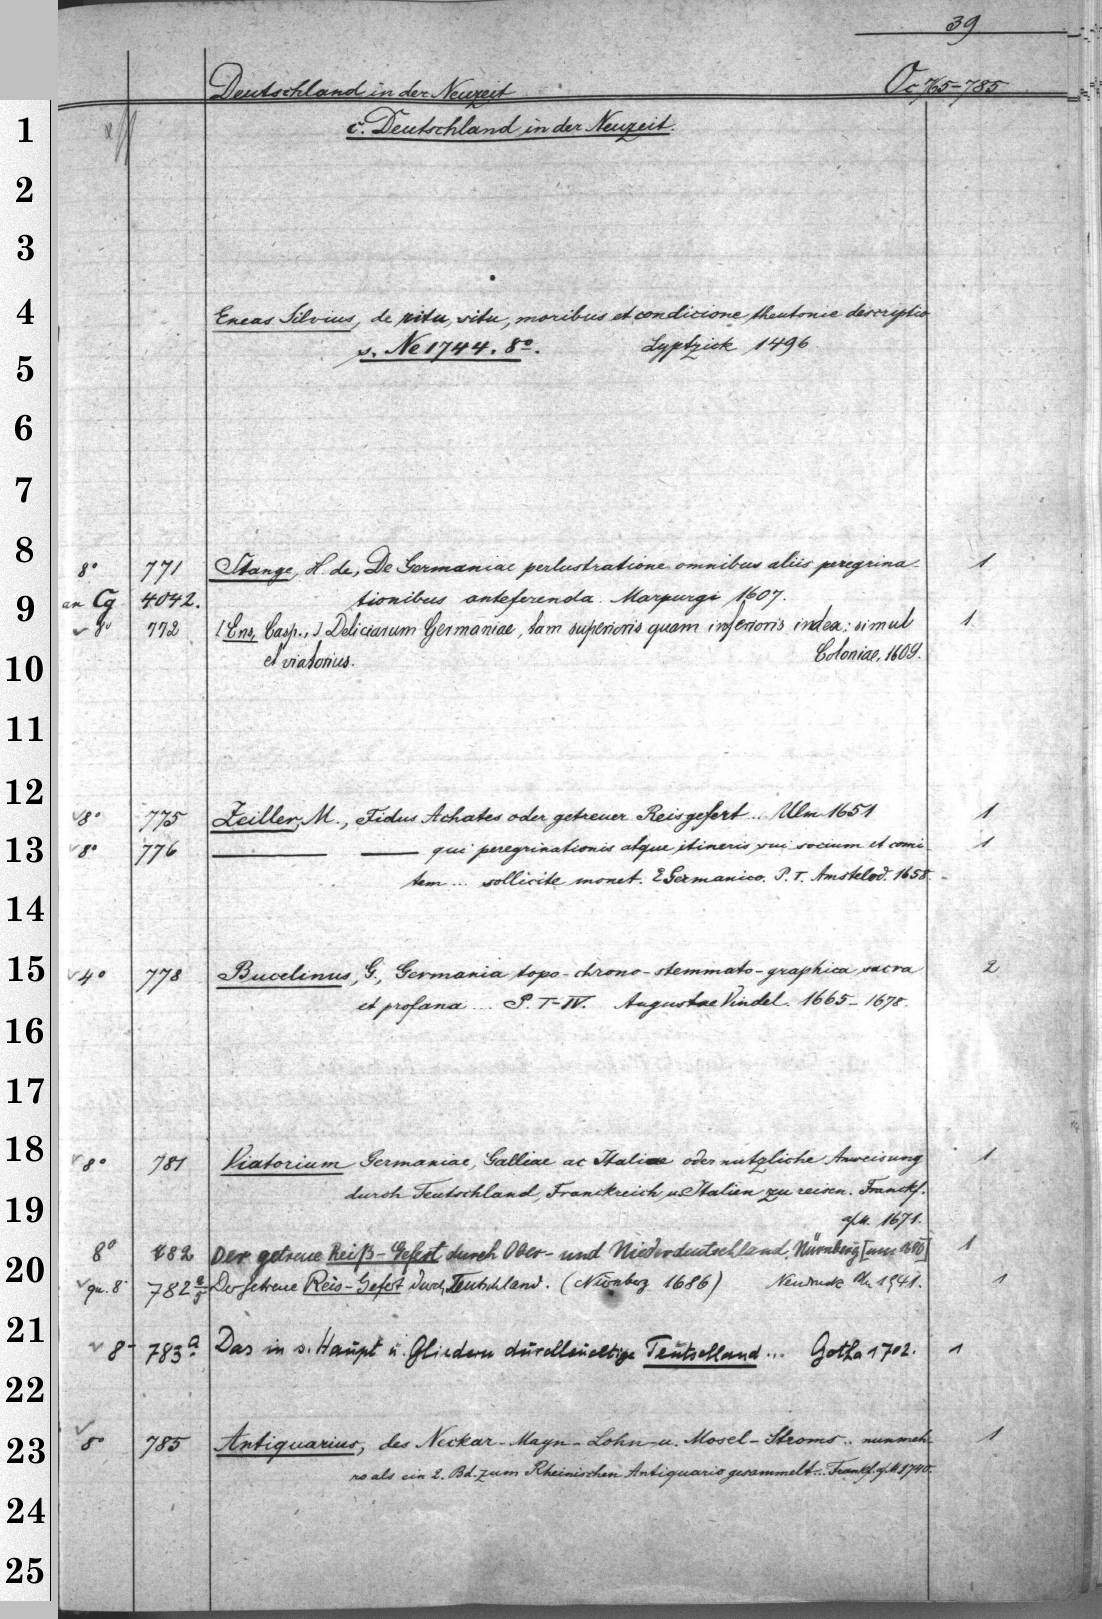 39
Deutschland in der Neuzeit Oc 765-785
1 c. Deutschland in der Neuzeit.
2
3
4 Eneas Silvius, de ritu, situ, moribus et condicione theutonie descriptio
s. Ne 1744. 8°. Lyptzick 1496
5
6
7
8 8° 771 Stange, H. de, De Germaniae perlustratione omnibus aliis peregrina- 1
9 an Cg 4042. tionibus anteferenda. Marpurgi 1607.
8° 772 [Ens, Casp.,] Deliciarum Germaniae, tam superioris quam inferioris index: simul 1
10 et viatorius. Coloniae, 1609.
11
12 8° 775 Zeiller, M., Fidus Achates oder getreuer Reisgefert... Ulm 1651 1
13 8° 776 — — qui peregrinationis atque itineris sui socium et comi- 1
tem ... sollicite monet. E Germanico. P. T. Amstelod. 1658.
14
15 4° 778 Bucelinus, G., Germania topo-chrono-stemmato-graphica sacra 2
et profana ... P. I-IV. Augustae Vindel. 1665-1678.
16
17
18 8° 781 Viatorium Germaniae, Galliae ac Italiae oder nutzliche Anweisung 1
durch Teutschland, Franckreich u. Italien zu reisen. Franckf.
19 a/M. 1671.
8° 782 Der getreue Reiß-Gefert durch Ober- und Niederdeutschland, Nürnberg [um 1680] 1
20 qu. 8° 782 Der getreue Reis-Gefert durch Teutschland. (Nürnberg 1686) Neudruck 1941. 1
21 8° 783a. Das in s. Haupt u. Gliedern durchleuchtige Teutschland ... Gotha 1702. 1
22
23 8° 785 Antiquarius, des Neckar- Mayn- Lohn- u. Mosel-Stroms .. nunmeh- 1
ro als ein 2. Bd. zum Rheinischen Antiquario gesammelt... Frankf. a/M 1740.
24
25